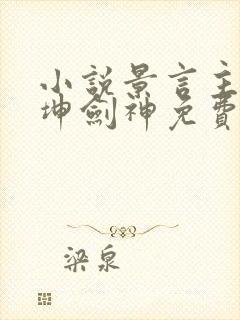 小說景言主
坤劍神免費
梁泉